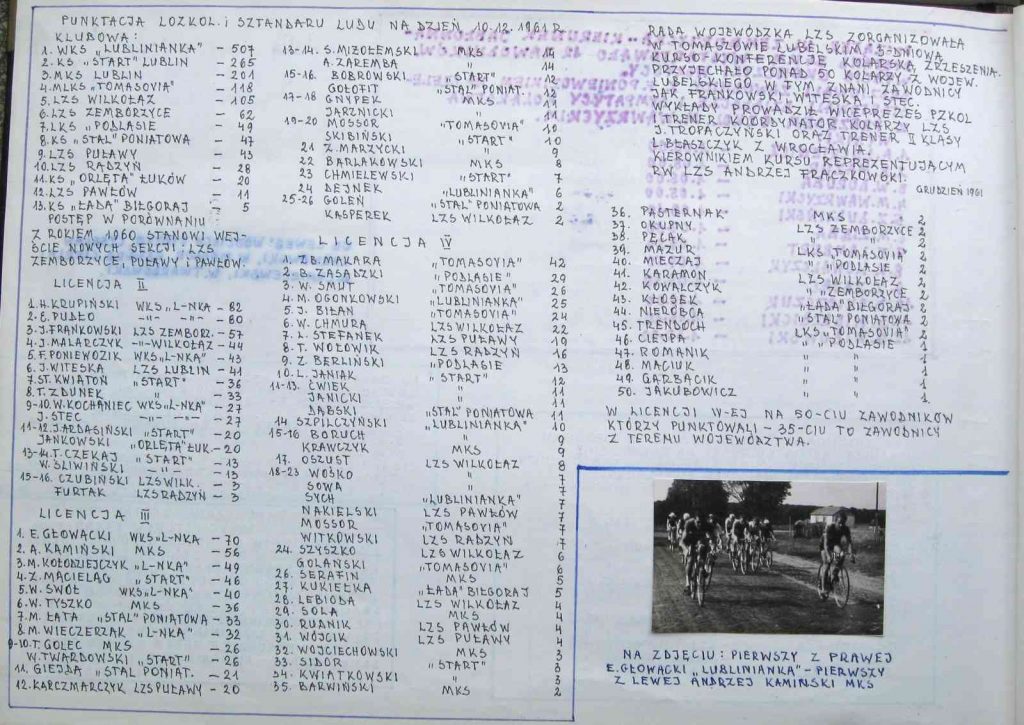 PUNKTACJA LOZKOL. i SZTANDARU LUDU NA DZIEŃ 10.12.1961 R
KLUBOWA:
1. WKS „LUBLINIANKA" - 507
2. KS „START" LUBLIN - 265
3. MKS LUBLIN - 201
4. MLKS „TOMASOVIA" - 118
5. LZS WILKOŁAZ - 105
6. LZS ZEMBORZYCE - 62
7. LKS „PODLASIE - 49
8. KS „STAL" PONIATOWA - 47
9. LZS PUŁAWY - 43
10. LZS RADZYŃ - 28
11. KS „ORLĘTA" ŁUKÓW - 20
12. LZS PAWŁÓW - 11
13. KS „ŁADA" BIŁGORAJ - 5
POSTĘP W PORÓWNANIU
Z ROKIEM 1960 STANOWI WEJ-
ŚCIE NOWYCH SEKCJI: LZS
ZEMBORZYCE, PUŁAWY i PAWŁÓW.
LICENCJA II
1. H. KRUPIŃSKI WKS „L-NKA - 82
2. E. PUDŁO -"- -"- - 60
3. J. FRANKOWSKI LZS ZEMBORZ. - 57
4. J. MALARCZYK -"- WILKOŁAZ - 44
5. F. PONIEWOZIK WKS „L-NKA" - 43
6. J. WITESKA LZS LUBLIN - 41
7. ST. KWIATOŃ „START" - 36
8. T. ZDUNEK " - 33
9-10. W. KOCHANIEC WKS „L-NKA" - 27
J. STEC -"- -"- - 27
11-12. J. ARDASIŃSKI „START" - 20
JANKOWSKI „ORLĘTA" ŁUK. - 20
13-14. T. CZEKAJ „START" - 13
W. ŚLIWIŃSKI -"- - 13
15-16. CZUBIŃSKI LZS WILK. - 3
FURTAK LZS RADZYŃ - 3
LICENCJA III
1. E. GŁOWACKI WKS „L-NKA - 70
2. A. KAMIŃSKI MKS - 56
3. M. KOŁODZIEJCZYK „L-NKA" - 49
4. Z. MACIELĄG „START" - 46
5. W. SWÓŁ WKS „L-NKA" - 40
6. W. TYSZKO MKS - 36
7. M. ŁATA „STAL" PONIATOWA - 33
8. M. WIECZERZAK „L-NKA" - 32
9-10. T. GOLEC MKS - 26
W. TWARDOWSKI „START" - 26
11. GIEJDA „STAL PONIAT. - 21
12. KARCZMARCZYK LZS PUŁAWY - 20
13-14. S. MIZOŁEMSKI MKS 14
A. ZAREMBA " 14
15-16. BOBROWSKI „START" 12
GOŁOFIT „STAL" PONIAT. 12
17-18 GNYPEK MKS 11
JARZNICKI " 11
19-20 MOSSOR „TOMASOVIA" 10
SKIBIŃSKI „START" 10
21 Z. MARZYCKI " 9
22 BARLAKOWSKI MKS 8
23 CHMIELEWSKI „START" 7
24 DEJNEK „LUBLINIANKA" 6
25-26 GOLEŃ „STAL" PONIATOWA 2
KASPEREK LZS WILKOŁAZ 2
LICENCJA IV
1. ZB. MAKARA „TOMASOVIA" 42
2. B. ZASADZKI „PODLASIE" 29
3. W. SMUT „TOMASOVIA" 26
4. M. OGONKOWSKI „LUBLINIANKA" 25
5. J. BIŁAN „TOMASOVIA" 24
6. W. CHMURA LZS WILKOŁAZ 22
7. L. STEFANEK LZS PUŁAWY 19
8. T. WOŁOWIK LZS RADZYŃ 16
9. Z BERLIŃSKI „PODLASIE 13
10. L. JANIAK „START" 12
11-13. ĆWIEK " 11
JANICKI " 11
DĄBSKI „STAL" PONIATOWA 11
14 SZPILCZYŃSKI „LUBLINIANKA" 10
15-16 BORUCH " 9
KRAWCZYK MKS 9
17. OSZUST LZS WILKOŁAZ 8
18-23 WOŚKO " 7
SOWA " 7
SYCH „LUBLINIANKA" 7
NAKIELSKI LZS PAWŁÓW 7
MOSSOR „TOMASOVIA" 7
WITKOWSKI LZS RADZYŃ 7
24. SZYSZKO LZS WILKOŁAZ 6
GOLAŃSKI „TOMASOVIA" 6
26. SERAFIN MKS 5
27. KUKIEŁKA „ŁADA" BIŁGORAJ 5
28. LEBIODA LZS WILKOŁAZ 4
29. SOLA MKS 4
30. RUDNIK LZS PAWŁÓW 4
31. WÓJCIK LZS PUŁAWY 4
32. WOJCIECHOWSKI MKS 3
33. SIDOR „START" 3
34. KWIATKOWSKI " 3
35. BARWIŃSKI MKS 2
RADA WOJEWÓDZKA LZS ZORGANIZOWAŁA
W TOMASZOWIE LUBELSKIM 5-DNIOWĄ
KURSO-KONFERENCJĘ KOLARSKĄ ZRZESZENIA.
PRZYJECHAŁO PONAD 50 KOLARZY Z WOJEW.
LUBELSKIEGO W TYM ZNANI ZAWODNICY
JAK FRANKOWSKI, WITESKA I STEC.
WYKŁADY PROWADZIŁ WICEPREZES PZKOL
I TRENER KOORDYNATOR KOLARZY LZS
J. TROPACZYŃSKI ORAZ TRENER II KLASY
L. BŁASZCZYK Z WROCŁAWIA.
KIEROWNIKIEM KURSU REPREZENTUJĄCYM
RW LZS ANDRZEJ FRĄCZKOWSKI.
GRUDZIEŃ 1961
36. PASTERNAK MKS 2
37. OKUPNY LZS ZEMBORZYCE 2
38. PĘCAK " " 2
39. MAZUR LKS „TOMASOVIA" 2
40. MIECZAJ " „PODLASIE 2
41. KARAMON LZS WILKOŁAZ 2
42. KOWALCZYK " „ZEMBORZYCE 2
43. KŁOSEK „ŁADA" BIŁGORAJ 2
44. NIERÓBCA „STAL" PONIATOWA 2
45. TRENDOCH LKS „TOMASOVIA" 2
46. CIEJPA " „PODLASIE 1
47. ROMANIK " " 1
48. MACIUK " " 1
49. GARBACIK " 1
50. JAKUBOWICZ " 1
W LICENCJI IV-EJ NA 50-CIU ZAWODNIKÓW
KTÓRZY PUNKTOWALI - 35-CIU TO ZAWODNICY
Z TERENU WOJEWÓDZTWA.
NA ZDJĘCIU: PIERWSZY Z PRAWEJ
E. GŁOWACKI „LUBLINIANKA" - PIERWSZY
Z LEWEJ ANDRZEJ KAMIŃSKI MKS